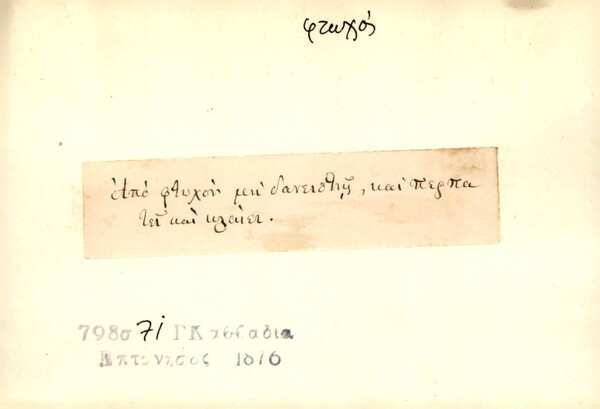 φτωχός
Από φτυχόν μη δανεισθής, και περπα
τεί και κλαίει.
798σ 71 Γ Κασσαδια
1876